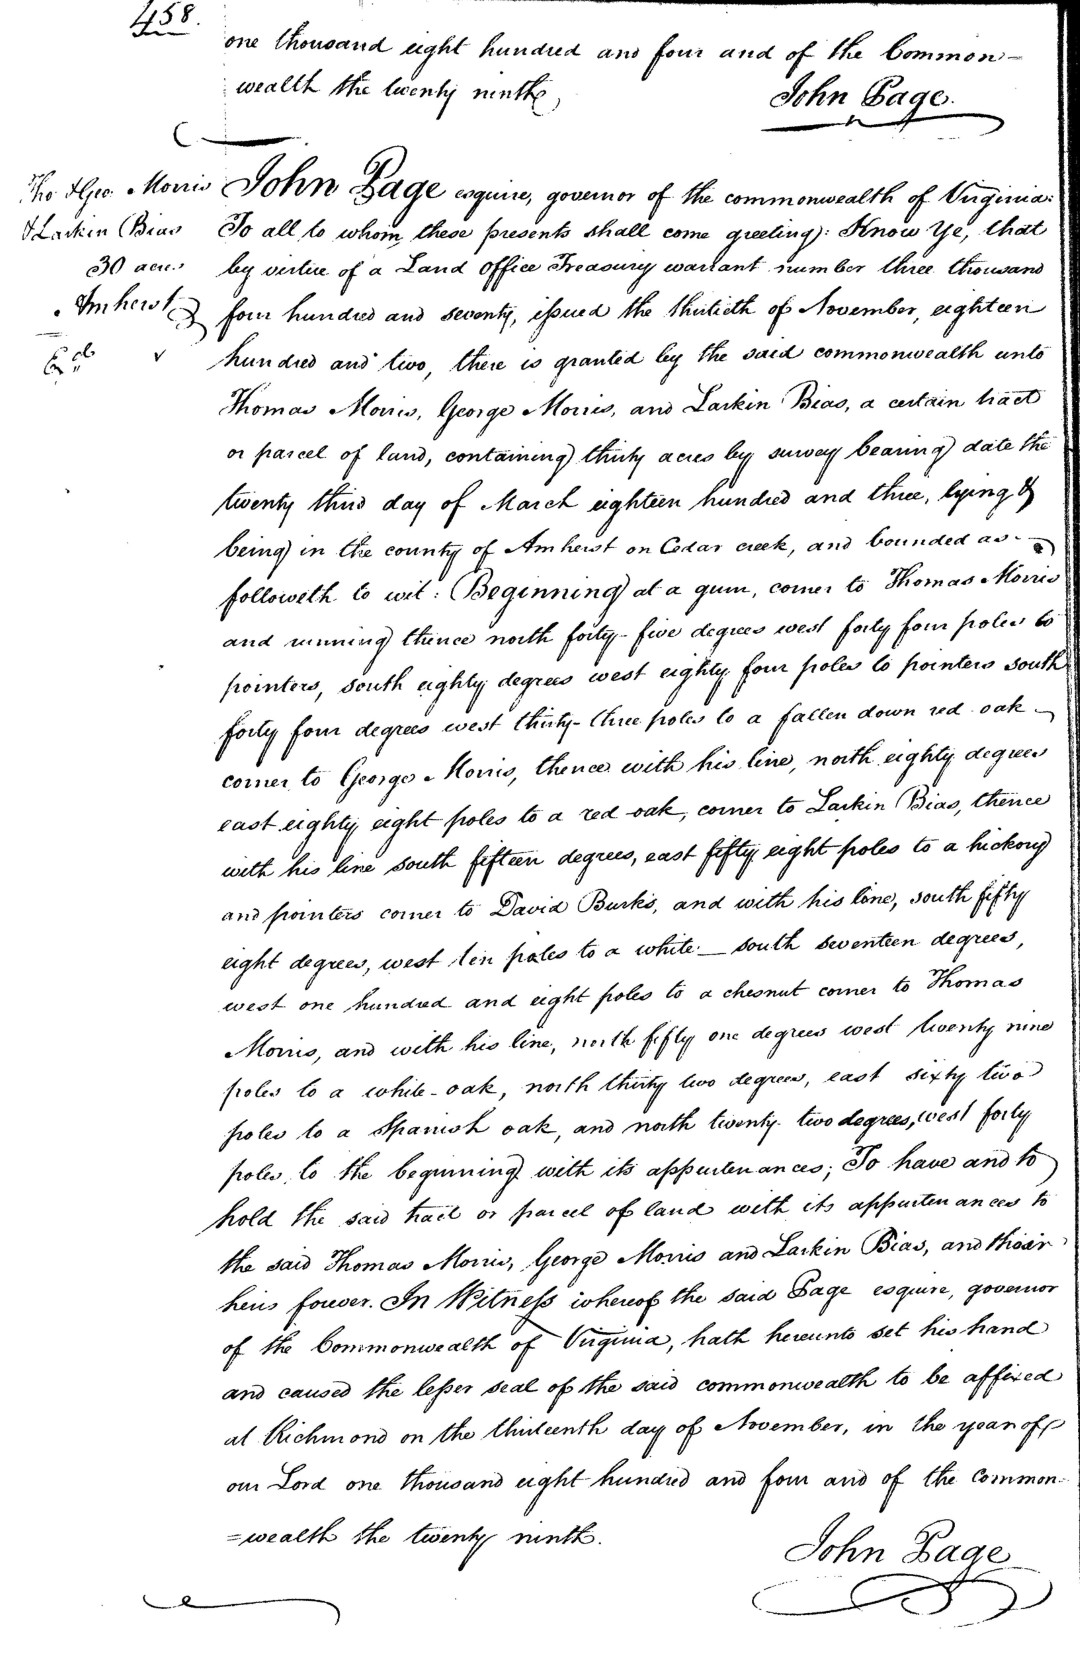 458.
one thousand eight hundred and four and of the Common-
wealth the twenty ninth,
John Page.
Tho & Geo. Morris
& Larkin Bias
30 acres
Amherst
Exd
John Page esquire, governor of the commonwealth of Virginia:
To all to whom these presents shall come greeting: Know Ye, that
by virtue of a Land office Treasury warrant number three thousand
four hundred and seventy, issued the thirtieth of November, eighteen
hundred and two, there is granted by the said commonwealth unto
Thomas Morris, George Morris, and Larkin Bias, a certain tract
or parcel of land, containing thirty acres by survey bearing date the
twenty third day of March eighteen hundred and three, lying &
being in the county of Amherst on Cedar creek, and bounded as
followeth to wit: Beginning at a gum, corner to Thomas Morris
and running thence north forty-five degrees west forty four poles to
pointers, south eighty degrees west eighty four poles to pointers south
forty four degrees west thirty-three poles to a fallen down red oak
corner to George Morris, thence with his line, north eighty degrees
east eighty eight poles to a red oak, corner to Larkin Bias, thence
with his line south fifteen degrees, east fifty eight poles to a hickory
and pointers corner to David Burks, and with his line, south fifty
eight degrees, west ten poles to a white — south seventeen degrees,
west one hundred and eight poles to a chesnut corner to Thomas
Morris, and with his line, north fifty one degrees west twenty nine
poles to a white-oak, north thirty two degrees, east sixty two
poles to a Spanish oak, and north twenty-two degrees, west forty
poles, to the beginning with its appurtenances; To have and to
hold the said tract or parcel of land with its appurtenances to
the said Thomas Morris, George Morris and Larkin Bias, and their
heirs forever. In Witness whereof the said Page esquire, governor
of the Commonwealth of Virginia, hath hereunto set his hand
and caused the lesser seal of the said commonwealth to be affixed
at Richmond on the thirteenth day of November, in the year of
our Lord one thousand eight hundred and four and of the common-
=wealth the twenty ninth.
John Page